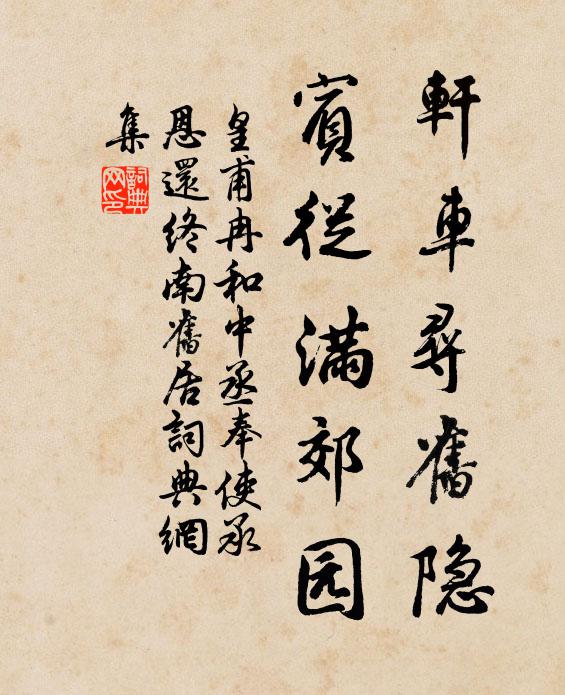 軒車尋舊隐
賓從滿郊园
皇甫冉和中丞奉使承
恩還終南舊居詞典網
集
詞典
网印